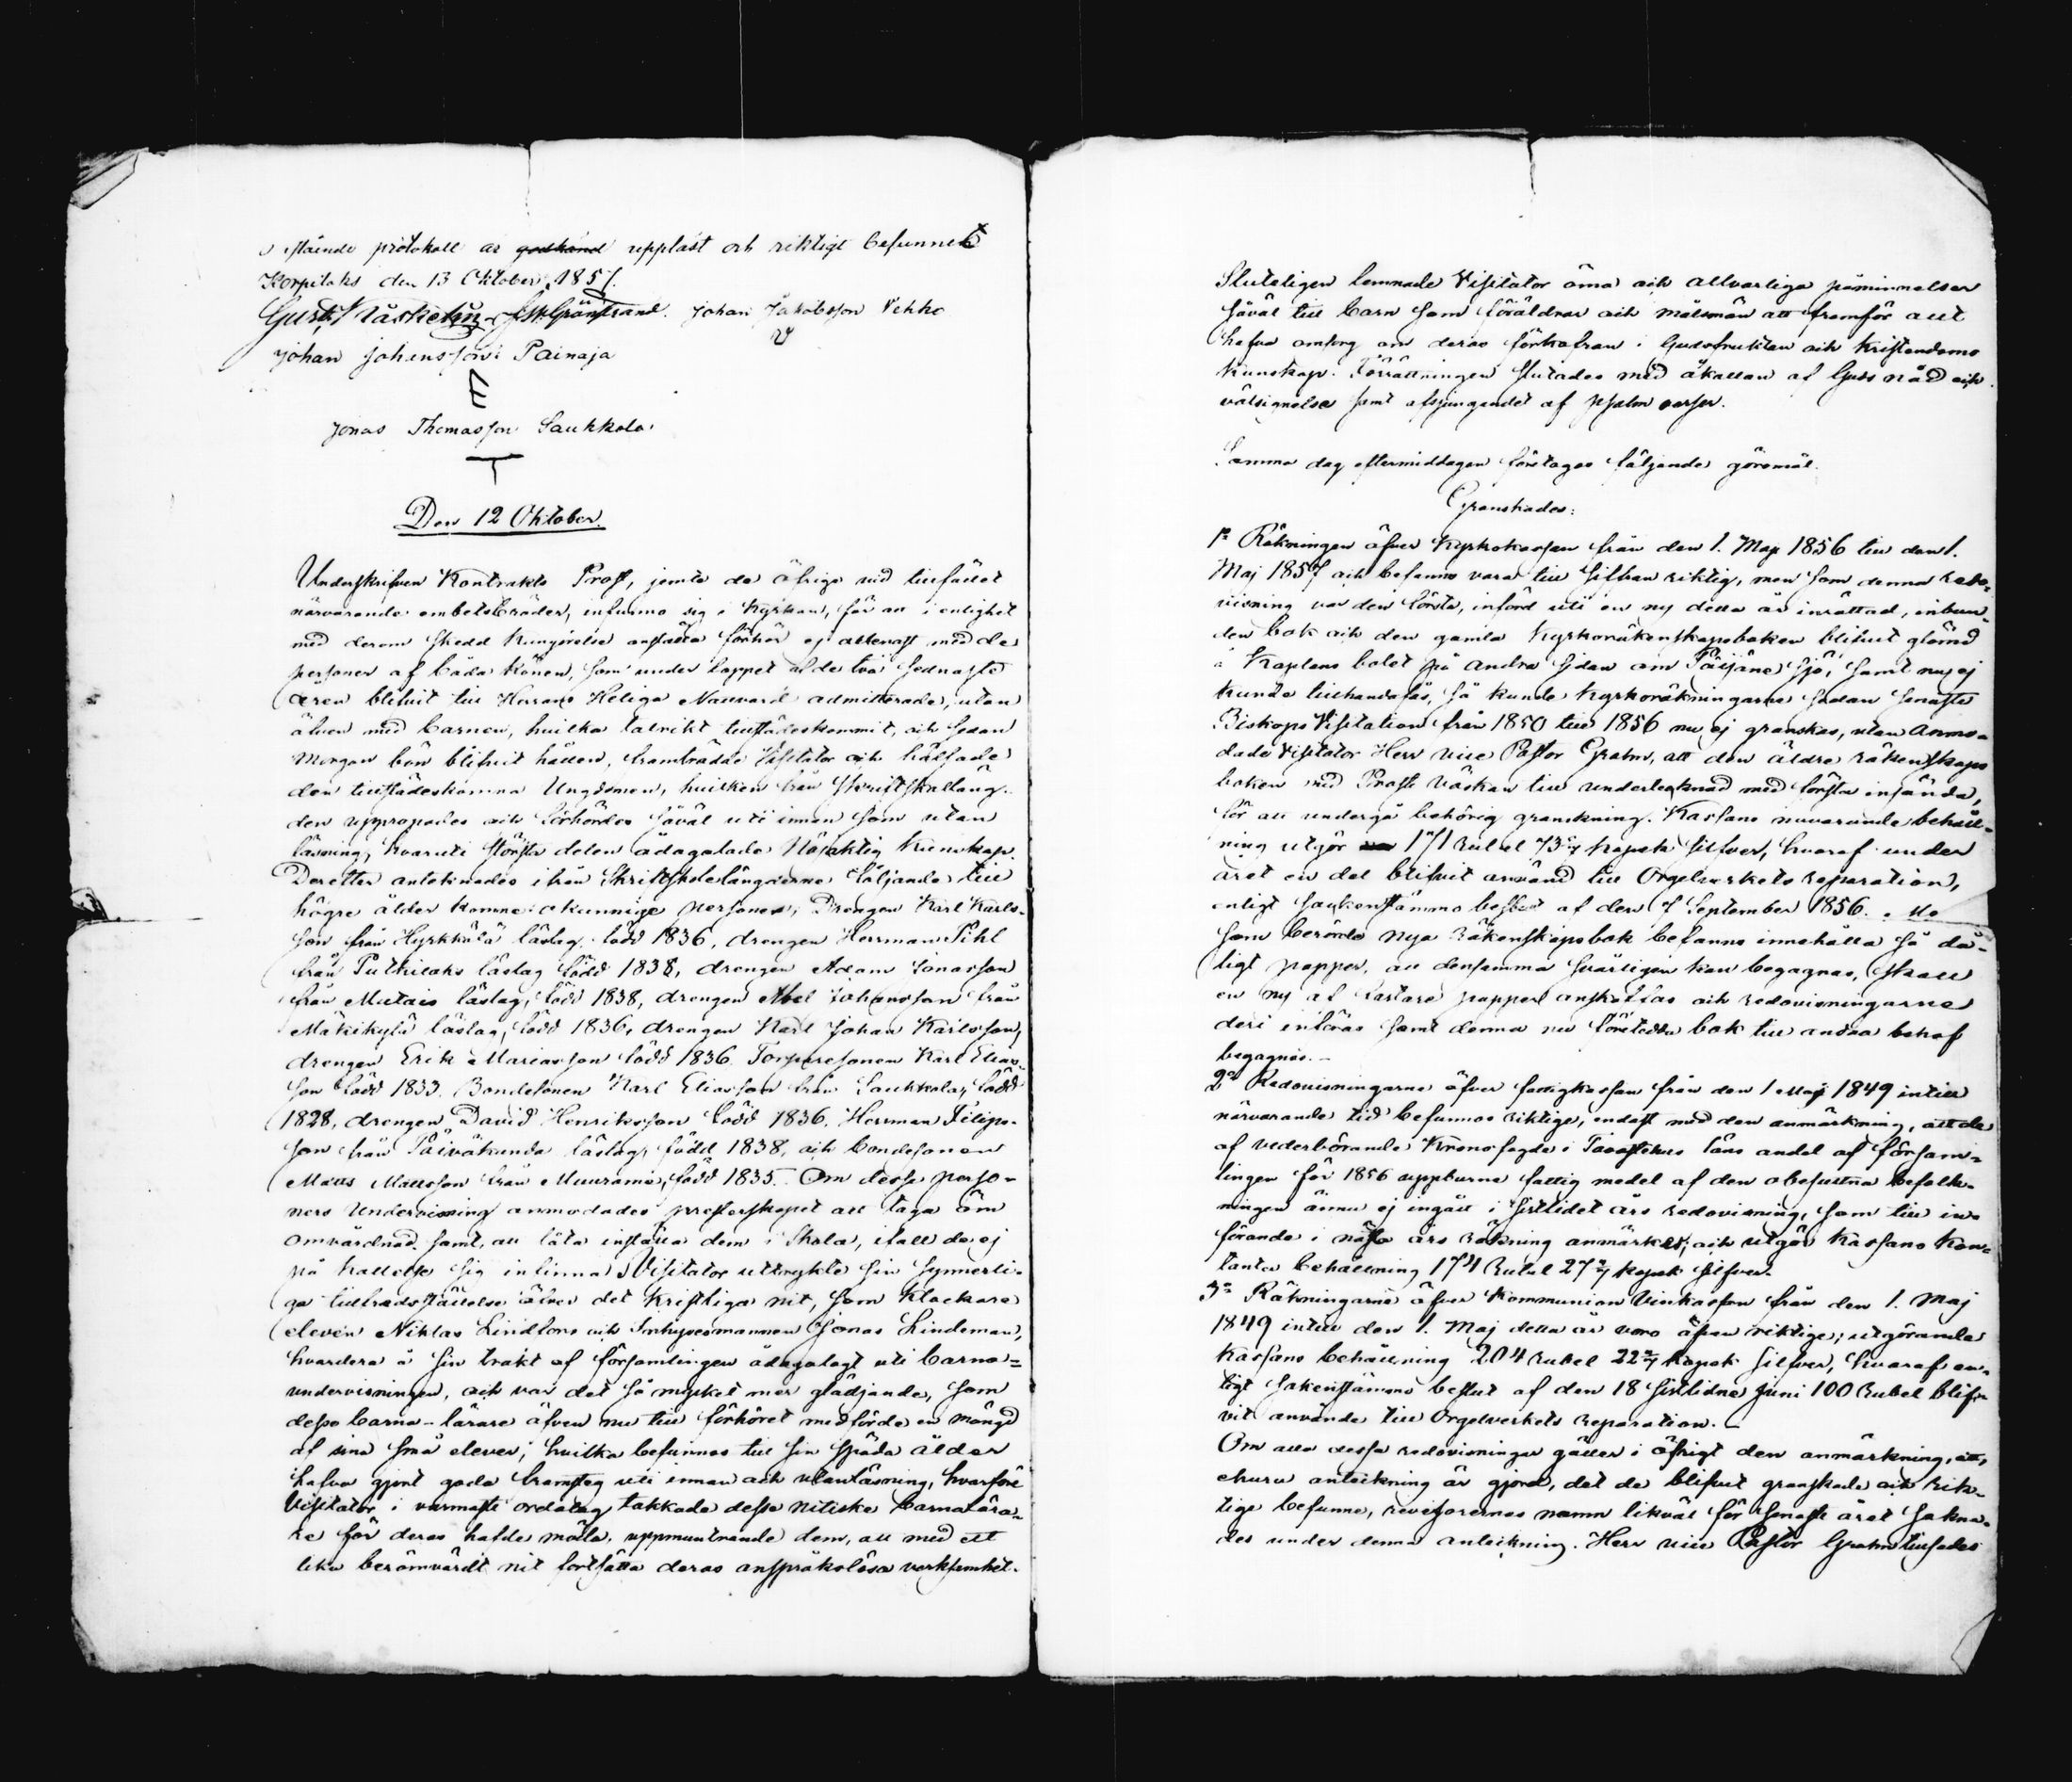 stående protokoll är godkänd uppläst och riktigt befunnet
Korpilaks den 13 Oktober 1857.
Gust. Gränstrand. Johan Jakobsson Vehko
Johan Johansson Painaja
Jonas Thomasson Saukkola.
Den 12 Oktober.
Underskrifven Kontrakts Prost, jemte de öfriga vid tillfället
närvarande embetsbröder, infunno sig i Kyrkan, för att i enlighet
med derom skedd kungörelse anställa förhör ej allenast med de
personer af båda könen, som under loppet af de två sednaste
åren blifvit till Herrans Heliga Nattvard admitterade, utan
äfven med barnen, hvilka talrikt tillstädeskommit, och sedan
Morgon bön blifvit hållen, framträdde Visitator och hälsade
den tillstädeskomna Ungdomen, hvilken från Skriftskolläng-
den uppropades och förhördes såväl uti innan som utan
läsning, hvaruti största delen ådagalade Nöjaktig kunskap.
Derefter antecknades ifrån Skriftskolelängderne följande till
högre ålder komne okunnige personer, Drengen Karl Karls-
son från Hyrkkälä läslag, född 1836, drengen Herrman Pihl
från Putkilaks läslag född 1838, drengen Adam Jonasson
från Mutais läslag, född 1838, drengen Abel Johansson från
Mäkikylä läslag, född 1836, drengen Karl Johan Karlsson,
drengen Erik Mariasson född 1836. Torparesonen Karl Elias-
son född 1833. Bondesonen Karl Eliasson från Saukkola, född
1828, drengen David Henriksson född 1836, Herrman Filips-
son från Päiväkunda läslag, född 1838, och bondesonen
Matts Mattsson från Muurame, född 1835. Om dessa perso-
ners Undervisning anmodades presterskapet att taga öm
omvårdnad samt, att låta inställa dem i Skola, ifall de ej
på kallelse sig infinna. Visitator uttryckte sin synnerli-
ga tillfredsställelse öfver det Kristliga nit, som Klockare
eleven Niklas Lindfors och Inhysesmannen Jonas Lindeman,
hvardera å sin trakt af församlingen ådagalagt uti barna-
undervisningen, och var det så mycket mer glädjande, som
dessa barna-lärare äfven nu till förhöret medförde en mängd
af sina små elever, hvilka befunnos till sin späda ålder
hafva gjort goda framsteg uti innan och utanläsning, hvarföre
Visitator i varmaste ordalag tackade dessa nitiske barnalära-
re för deras hafde möda, uppmuntrande dem, att med ett
lika berömvärdt nit fortsätta deras anspråkslösa verksamhet.
Sluteligen lemnade Visitator öma och allvarliga påminnelser
såväl till barn som föräldrar och målsmän att framför allt
hafva omsorg om deras förkofran i Gudsfruktan och Kristendoms
kunskap. Förrättningen slutades med åkallan af Guds nåd och
välsignelse samt afsjungandet af psalm verser.
Samma dag eftermiddagen företages följande göromål.
Granskades:
1o Räkningen öfver Kyrkokassan från den 1. Maji 1856 till den 1.
Maj 1857 och befanns vara till siffran riktig, men som denna redo-
visning var den första, införd uti en ny detta år inrättad, inbun-
den bok och den gamla Kyrkoräkenskapsboken blifvit glömd
i Kaplans bolet på andra sidan om Päijäne sjö, samt nu ej
kunde tillhandafås, så kunde Kyrkoräkningarne sedan senaste
Biskops Visitation från 1850 till 1856 nu ej granskas, utan anmo-
dade Visitator Herr vice Pastor Grahn, att den äldre räkenskaps
boken med Prost Väskan till undertecknad med första insända,
för att undergå behörig granskning. Kassans nuvarande behåll-
ning utgör 171 Rubel 73 kopek silfver, hvaraf under
året en del blifvit använd till Orgelverkets reparation,
enligt sockenstämmo beslut af den 7 September 1856.
som berörda nya Räkenskapsbok befanns innehålla så då-
ligt papper, att densamma svårligen kan begagnas, skall
en ny af fastare papper anskaffas och redovisningarne
deri införas samt denna nu företedda bok till andra behof
begagnas.-
2o Redovisningarne öfver fattigkassan från den 1 Maj 1849 intill
närvarande tid befunnos riktige, endast med den anmärkning, att de
af vederbörande Kronofogde i Tavastehus läns andel af försam-
lingen för 1856 uppburne fattig medel af den obesuttna befolk-
ningen ännu ej ingått i sistlidet års redovisning, som till in-
förande i nästa års räkning anmärktes, och utgör Kassans kon-
tanta behållning 174 Rubel 27 kopek silfver.
3o Räkningarne öfver Kommunion Vinkassan från den 1. Maj
1849 intill den 1. Maj detta år voro äfven riktige, utgörande
Kassans behållning 204 Rubel 22 kopek silfver, hvaraf en-
ligt sockenstämmo beslut af den 18 sistlidne Juni 100 Rubel blif-
vit använde till Orgelverkets Reparation. -
Om alla dessa redovisningar gäller i öfrigt den anmärkning, att,
churu anteckning är gjord, det de blifvit granskade och rik-
tige befunne, revisorernas namn likväl för senaste året sakna-
des under denna anteckning. Herr vice Pastor Grahn tillsades